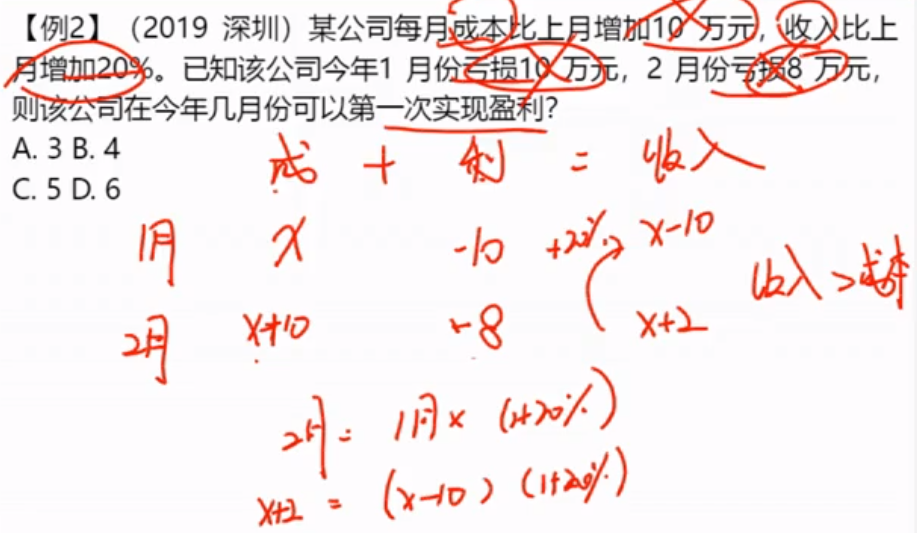 【例2】（2019 深圳）某公司每月成本比上月增加10 万元，收入比上
月增加20%。已知该公司今年1 月份亏损10 万元，2 月份亏损8 万元，
则该公司在今年几月份可以第一次实现盈利？
A. 3 B. 4
C. 5 D. 6
成 + 利 = 收入
1月 x -10 +20% x-10
收入>成本
2月 x+10 -8 x+2
2月 = 1月 × (1+20%)
x+2 = (x-10) (1+20%)